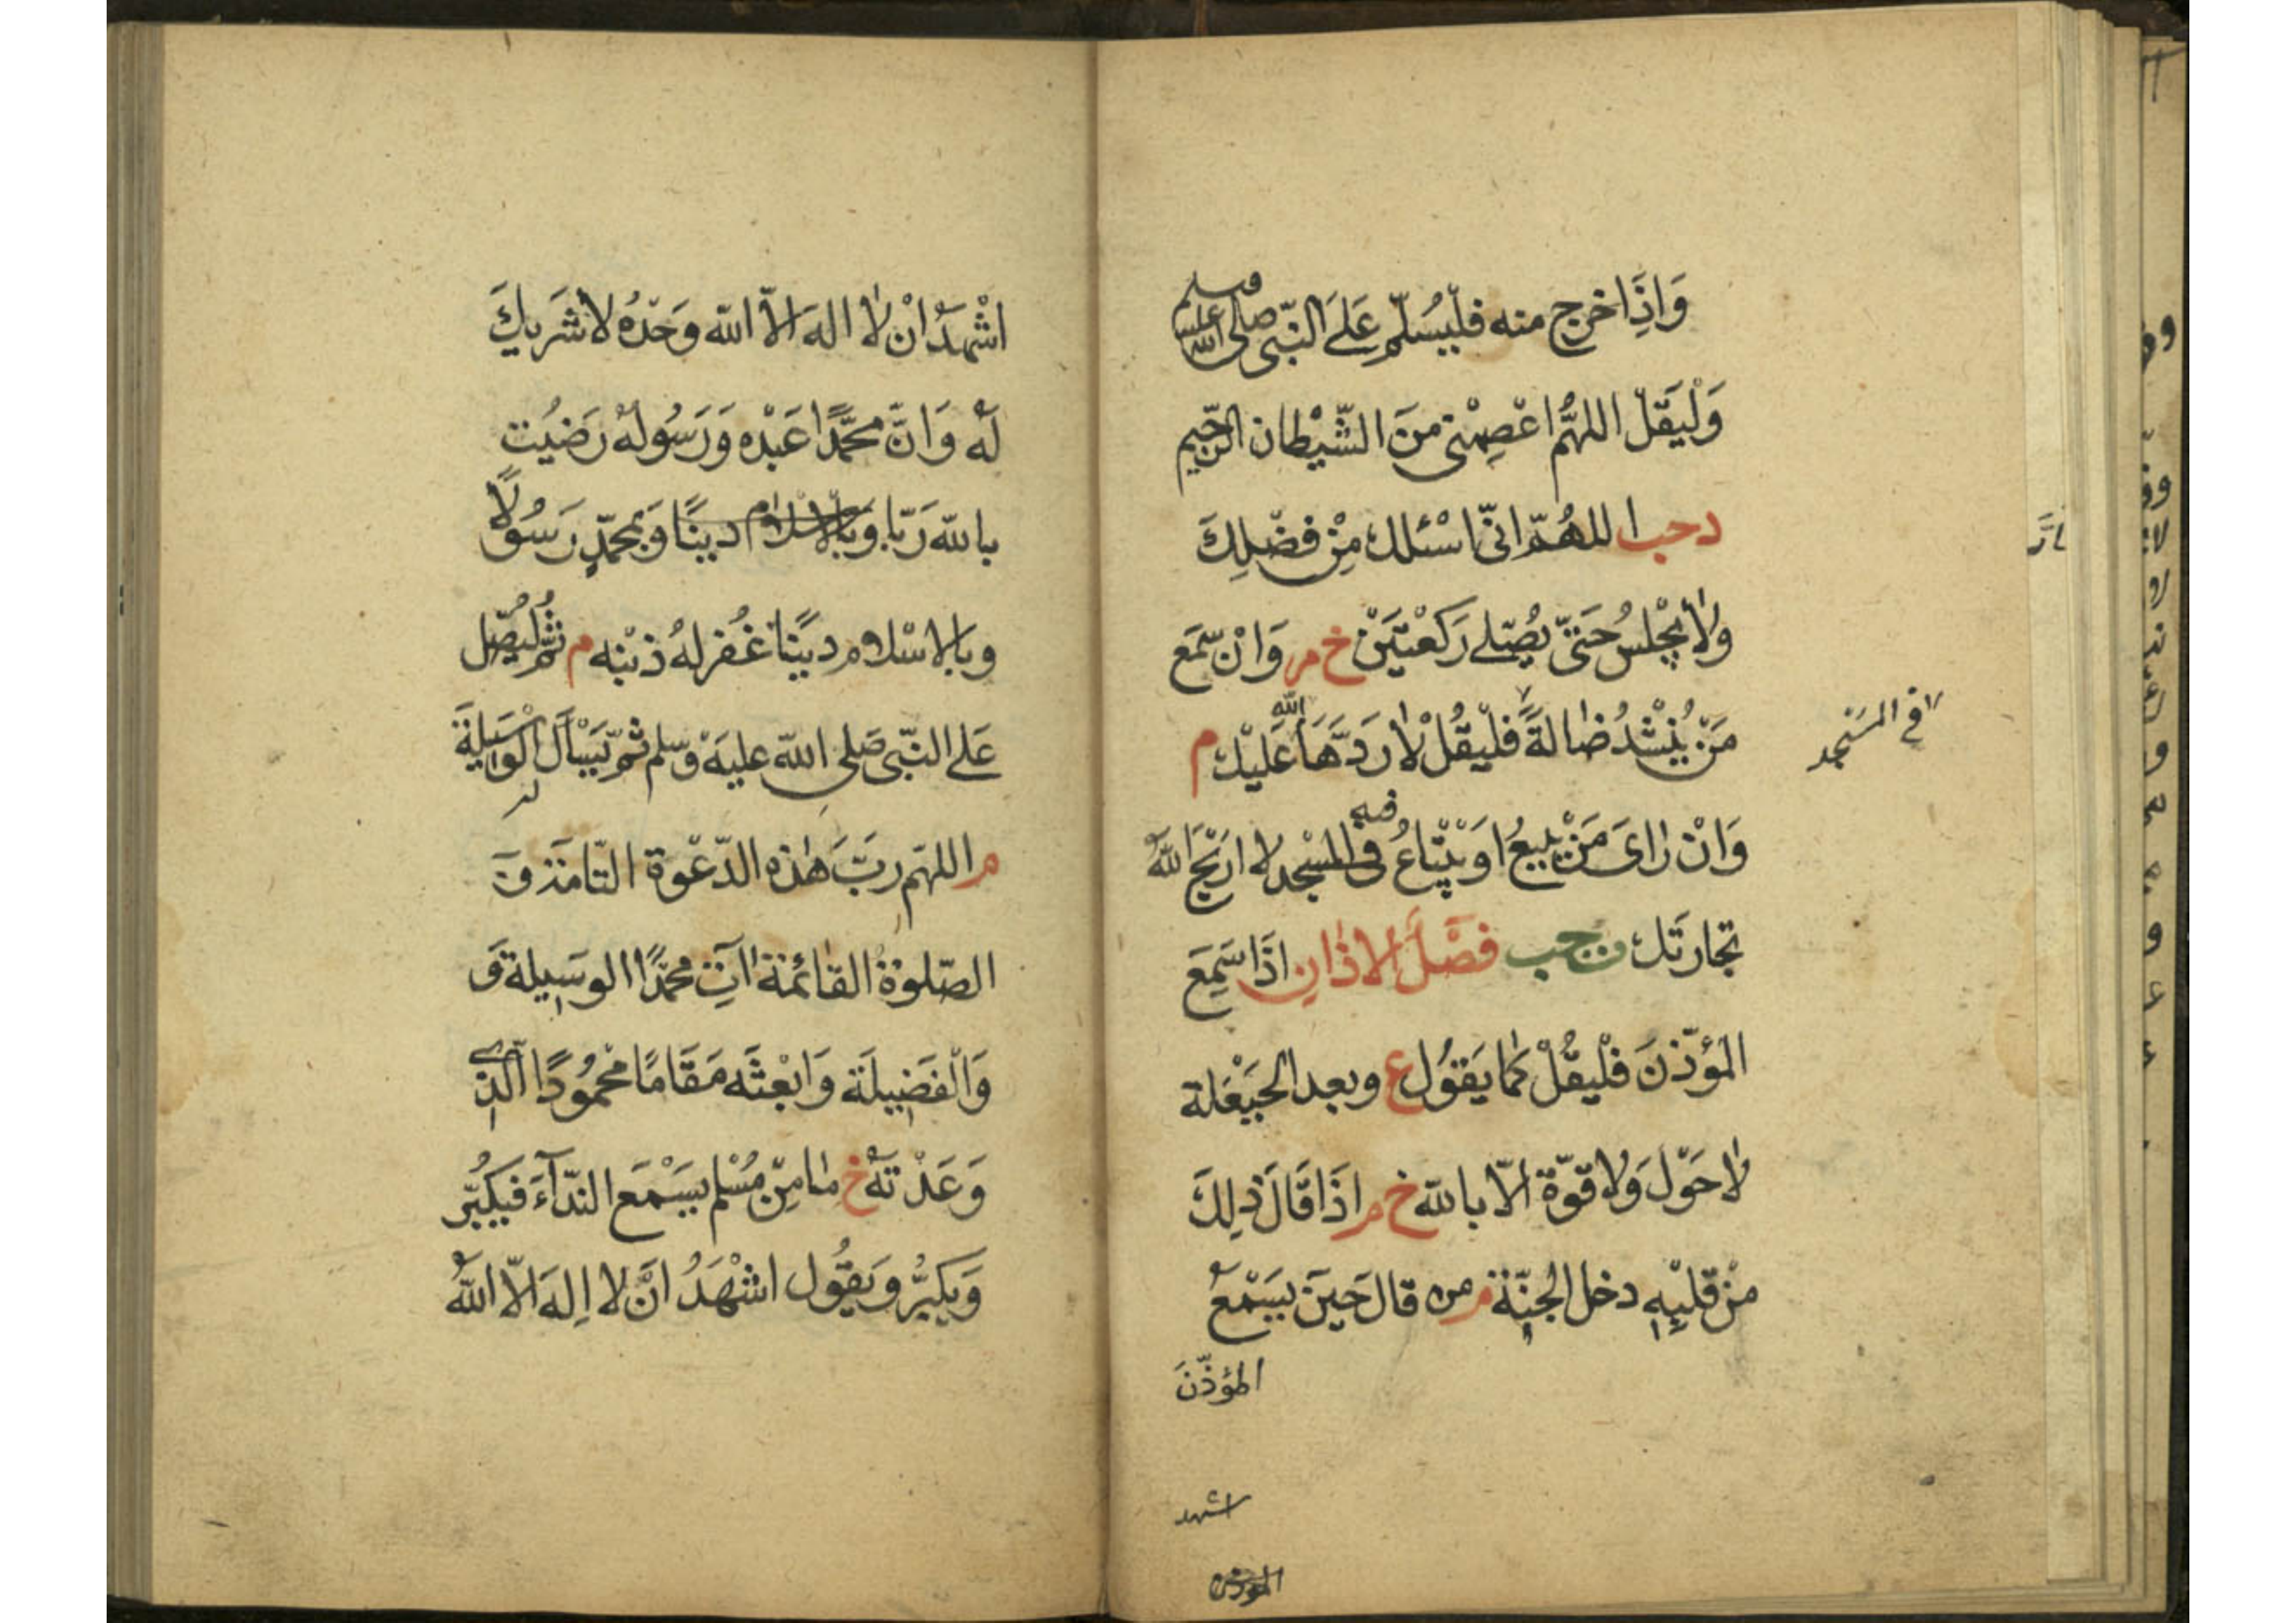 وَاِذَا خرج منه فليُسَلّم عَلَى النّبى صلى الله عليه وسلم
وَلْيَقُل اللهُمّ اعْصِمْنى مِنَ الشّيْطان الرّجيم
د حب اللهُمّ انّى اسْئلك مِنْ فضْلِكَ
ولا يجْلسُ حَتىّ يُصَلى رَكعْتيَنْ خ م وَانْ سَمعَ
مَنْ يُنْشدُ ضالةً فلْيقُلْ لا رَدَّهَا الله عَليْك م
في المسْجد
وَانْ رَاىَ مَنْ يبيعُ اوْ يبْتاعُ فيه فى المسْجد لا ارْبَحَ اللهُ
تجارتَك حب فصْلُ الاذانِ اذَا سَمِعَ
المؤذّنَ فلْيقُلْ كما يَقوُل ع وبعد الحَيْعَلة
لا حَوْلَ وَلا قوّة الّا بالله خ م اذَا قَالَ ذلِكَ
مِنْ قلبِهِ دخل الجنّة م من قال حَينَ يسَمْعُ
المؤذّنَ
اشهد
المؤذن
اشْهدُ انْ لا الهَ الّا الله وَحْدُه لا شَريكَ
لهُ وَانَّ محمَّدًا عَبْده وَرَسُولهُ رَضيُت
بالله رَبّا وَبالاسْلام دينًا وَبمحَمّدٍ رَسُولًا
وبالاسْلام دينًا غُفرلهُ ذنبْه م ثمّ ليُصَلّ
عَلى النّبى صَلى الله عليهْ وسّلم ثمّ يَسْأَل الوَسيلةَ
لهُ
م اللهمّ ربَّ هٰذه الدّعْوة التّامّة وَ
الصّلوٰة القائمة آتِ محمّدًا الوسَيلة وَ
وَالْفَضيلَة وَابْعثَه مَقَامًا محْمُودًا الّذى
وَعَدْتَهُ خ ما مِنْ مُسْلم يسَمْعَ الندّآءَ فيَكبُّر
وَيكبُّر وَيقُول اشْهَدُ انْ لا اِلهَ الّا اللهُ